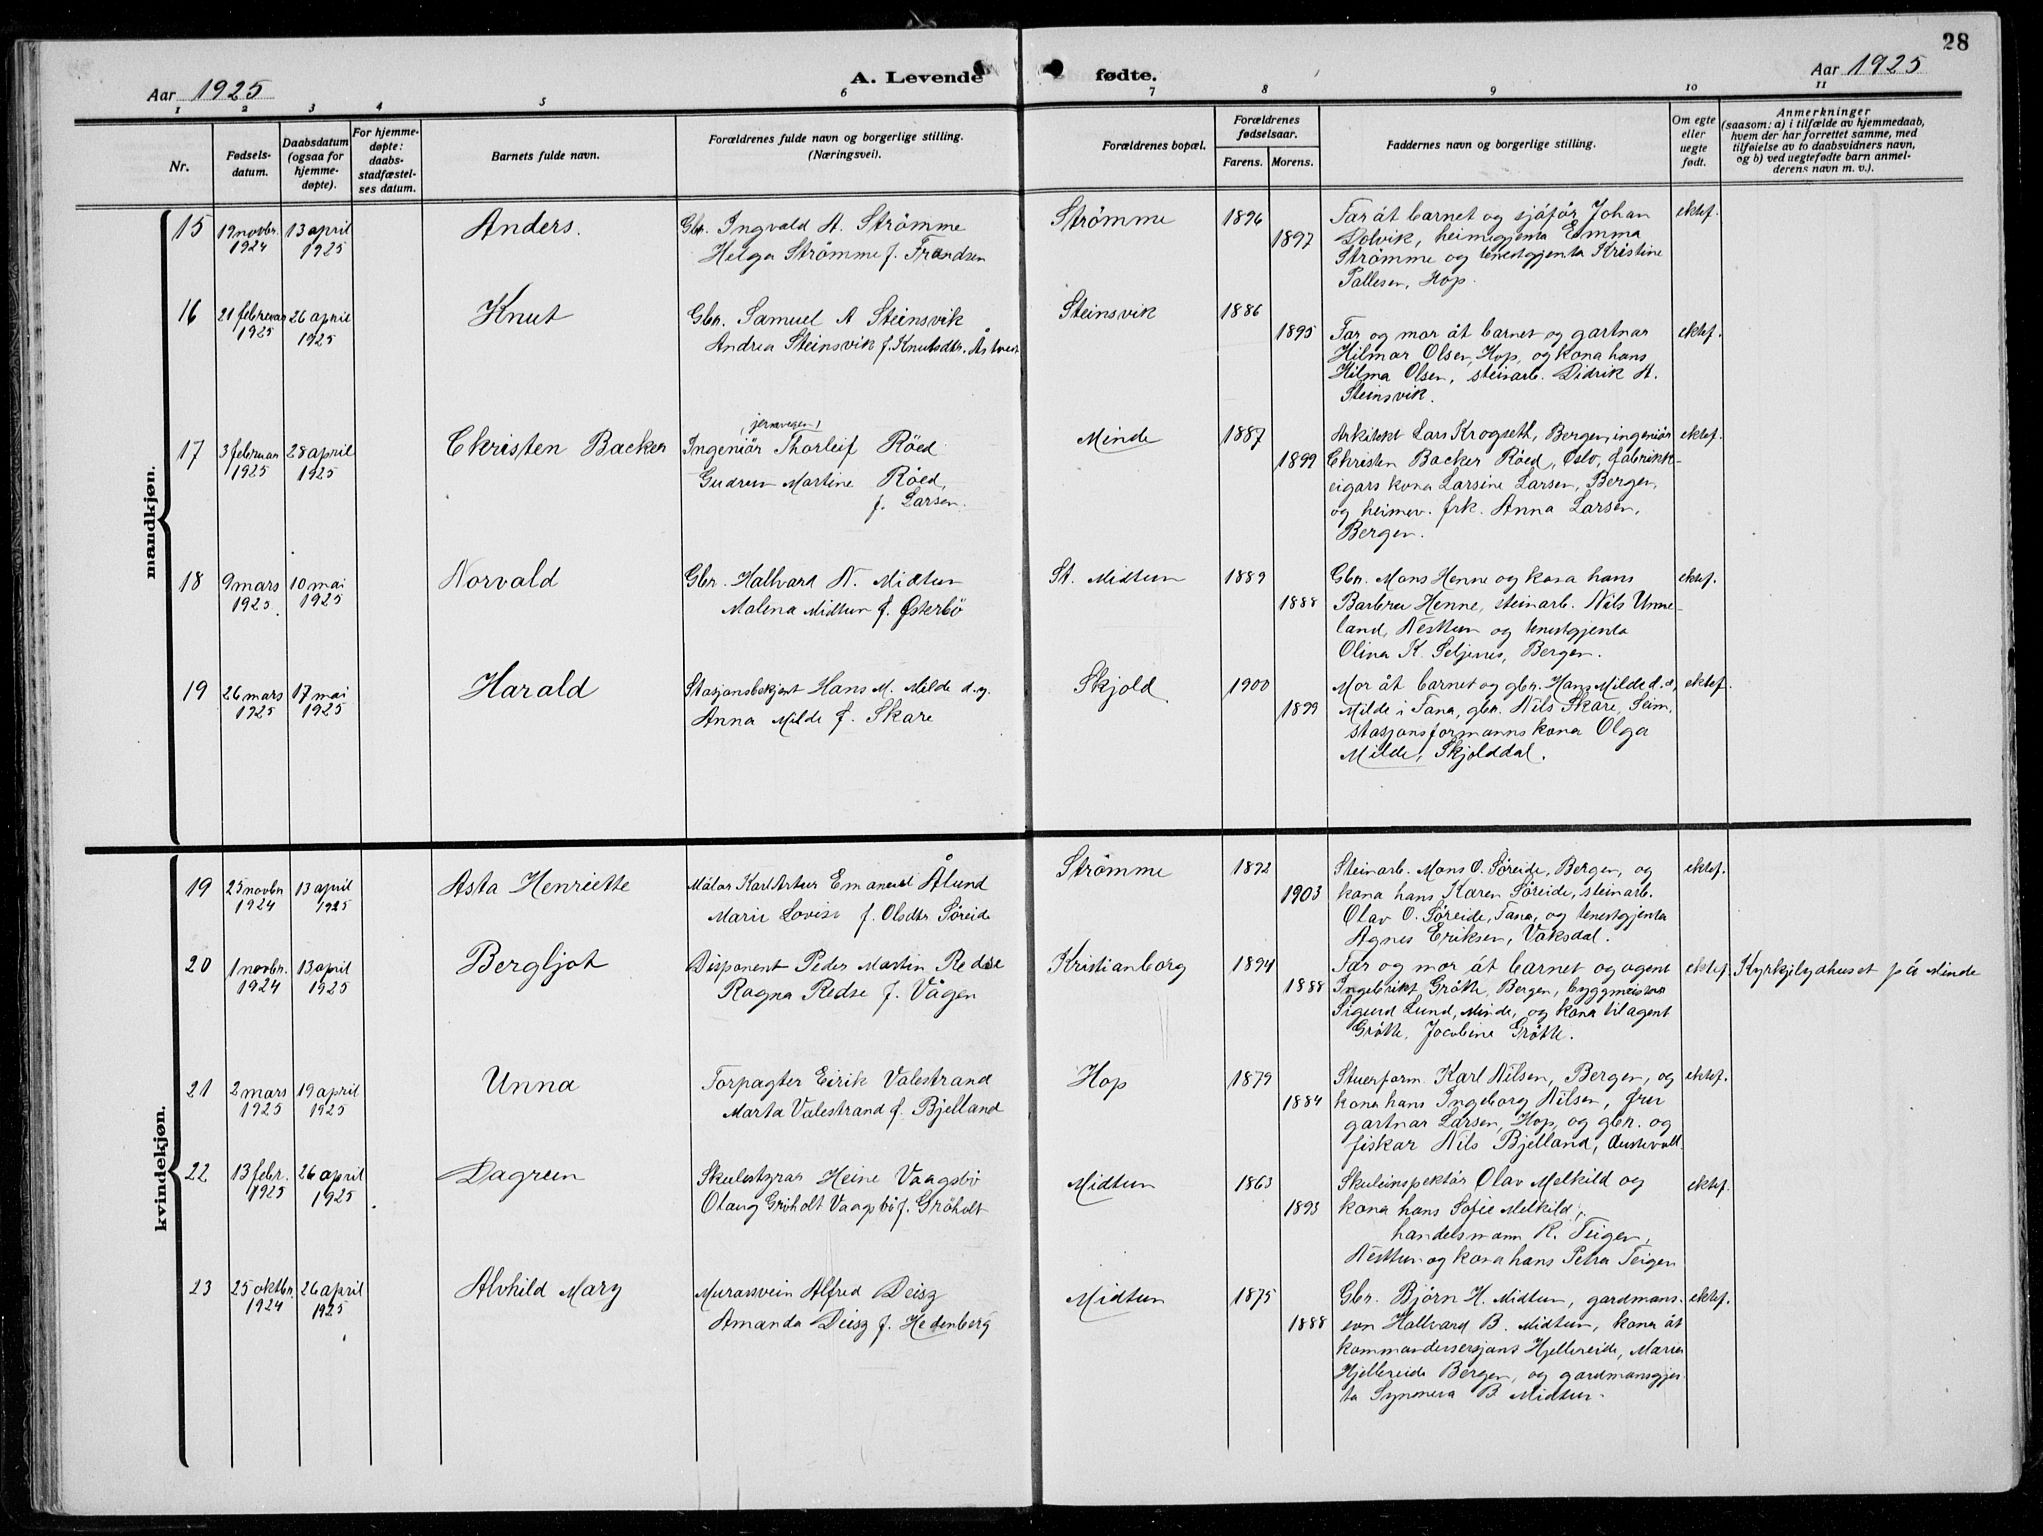 28
Aar 1925
A. Levende fødte.
Aar 1925
1 2 3 4 5 6 7 8 9 10 11
Nr.
Fødsels-
datum.
Daabsdatum
(ogsaa for
hjemme-
døpte).
For hjemme-
døpte:
daabs-
stadfæstel-
ses datum.
Barnets fulde navn.
Forældrenes fulde navn og borgerlige stilling.
(Næringsvei).
Forældrenes bopæl.
Forældrenes
fødselsaar.
Farens. Morens.
Faddernes navn og borgerlige stilling.
Om egte
eller
uegte
født.
Anmerkninger
(saasom: a) i tilfælde av hjemmedaab,
hvem der har forrettet samme, med
tilføielse av to daabsvidners navn,
og b) ved uegtefødte barn anmel-
derens navn m. v.).
mandkjøn.
15
19 novbr.
1924
13 april
1925
Anders.
Gbr. Ingvald A. Strømme
Helga Strømme f. Frandsen
Strømme
1896
1897
Far åt barnet og sjåfør Johan
Dolvik, heimegjenta Emma
Strømme og tenestgjenta Kristine
Pallesen, Hop.
ektef.
16
21 februar
1925
26 april
1925
Knut
Gbr. Samuel A Steinsvik
Andrea Steinsvik f. Knutsdtr. Åstveit
Steinsvik
1886
1895
Far og mor åt barnet og gartnar
Hilmar Olsen, Hop, og kona hans
Hilma Olsen, steinarb. Didrik A.
Steinsvik.
ektef.
17
3 februar
1925
28 april
1925
Christen Backer
(jernvegen)
Ingeniør Thorleif Röed
Gudrun Martine Röed,
f. Larsen.
Minde
1887
1899
Arkitekt Lars Krogseth, Bergen, ingeniør
Christen Backer Röed, Oslo, fabrikk-
eigars kona Larsine Larsen, Bergen,
og heimev. frk. Anna Larsen,
Bergen.
ektef.
18
9 mars
1925
10 mai
1925
Norvald
Gbr. Hallvard N. Midtun
Malena Midtun f. Østerbö
St. Midtun
1889
1888
Gbr. Mons Henne og kona hans
Barbra Henne, steinarb. Nils Unne-
land, Nesttun og tenestgjenta
Olina K. Seljenes, Bergen.
ektef.
19
26 mars
1925
17 mai
1925
Harald
Stasjonsbetjent Hans M. Milde d.y.
Anna Milde f. Skare
Skjold
1900
1899
Mor åt barnet og gbr. Hans Milde d.e,
Milde i Fana, gbr. Nils Skare, Seim,
stasjonsformanns kona Olga
Milde, Skjolddal.
ektef.
kvindekjøn.
19
25 novbr
1924
13 april
1925
Asta Henriette
Målar Karl Artur Emanuel Ålund
Marie Lovise f. Olsdtr Søreide
Strømme
1892
1903
Steinarb. Mons O. Søreide, Bergen, og
kona hans Karen Søreide, steinarb.
Olav O. Søreide, Fana, og tenestgjenta
Agnes Eriksen, Vaksdal.
ektef.
20
1 novbr.
1924
13 april
1925
Bergljot
Disponent Peder Martin Redse
Ragna Redse f. Vågen
Kristianborg
1894
1888
Far og mor åt barnet og agent
Ingebrikt Gråtte, Bergen, byggmeister
Sigurd Lund, Minde, og kona til agent
Gråtte, Jacobine Gråtte.
ektef.
Kyrkjelydhuset på Minde
21
2 mars
1925
19 april
1925
Unna
Forpagter Eirik Valestrand
Marta Valestrand f. Bjelland
Hop
1879
1884
Stuerform. Karl Nilsen, Bergen, og
kona hans Ingeborg Nilsen, fru
gartnar Larsen, Hop, og gbr. og
fiskar Nils Bjelland, Austevoll
ektef.
22
13 febr.
1925
26 april
1925
Dagrun
Skulestyrar Heine Vaagsbö
Olaug Gröholt Vaagsbö f. Gröholt
Midtun
1863
1893
Skuleinspektör Olav Melkild og
kona hans Sofie Melkild,
handelsmann R. Teigen,
Nesttun og kona hans Petra Teigen
ektef.
23
25 oktbr.
1924
26 april
1925
Alvhild Mary
Murarsvein Alfred Deisz
Amanda Deisz f. Hedenberg
Midtun
1875
1888
Gbr. Bjørn H. Midtun, gardmans-
son Hallvard B. Midtun, kona åt
kommandersersjant Hjelleneide, Maria
Hjelleneide Bergen, og gardmansgjen-
ta Synneva B Midtun.
ektef.